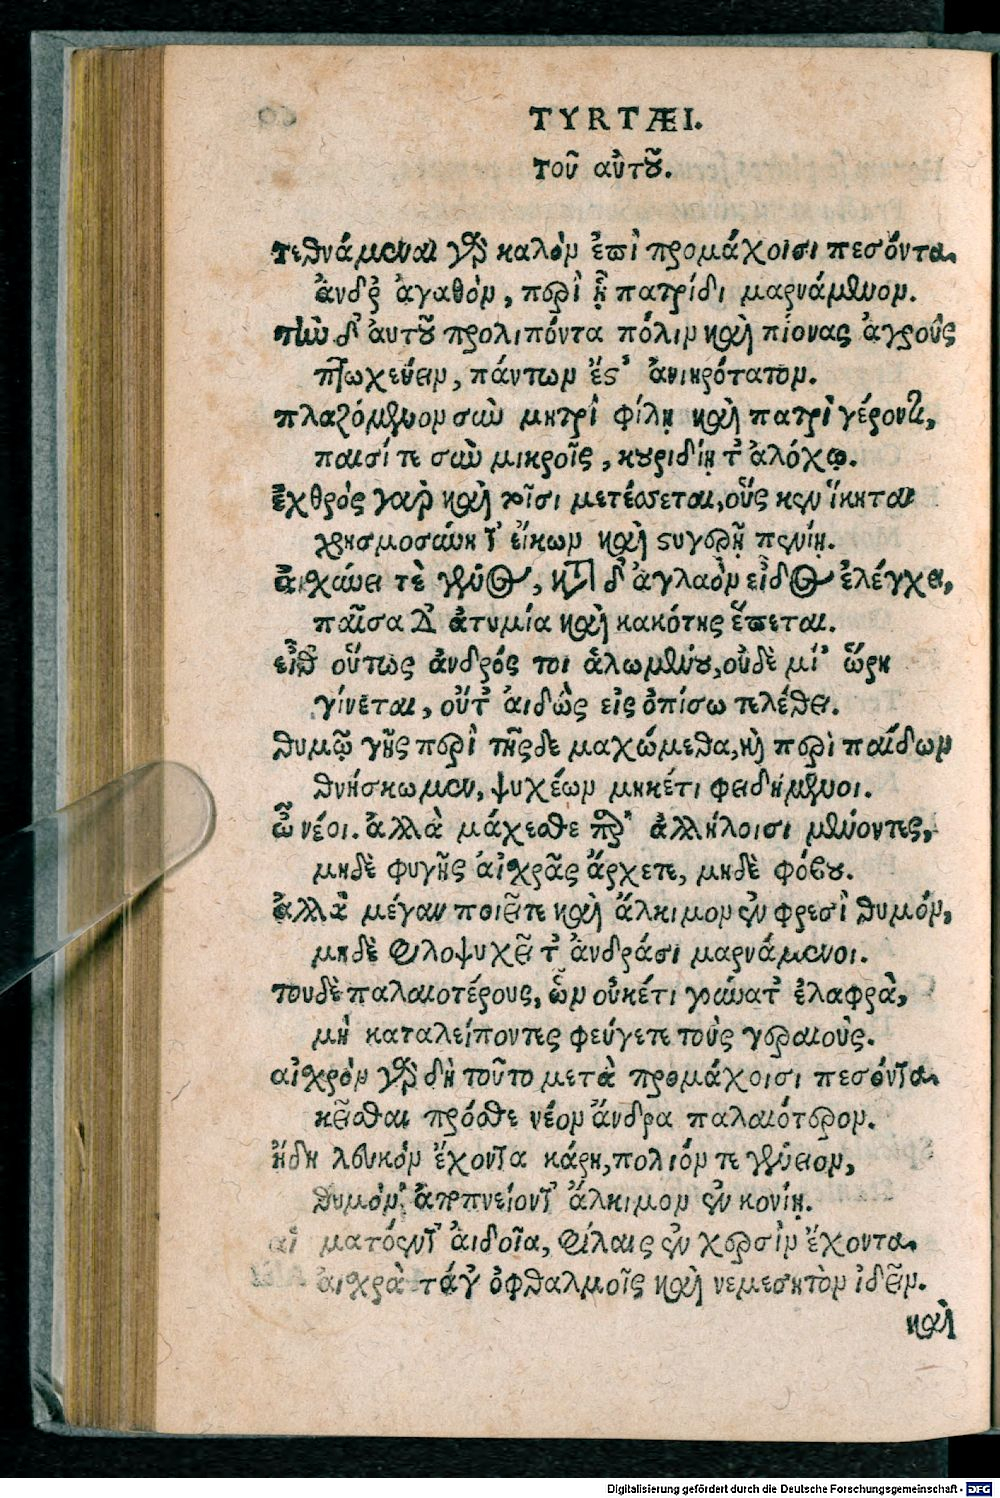 TYRTÆI.
τοῦ αὐτοῦ.
τεθνάμεναι γὰρ καλὸν ἐπὶ προμάχοισι πεσόντα
ἄνδρ' ἀγαθὸν, περὶ ᾗ πατρίδι μαρνάμενον.
τὴν δ' αὐτοῦ προλιπόντα πόλιν καὶ πίονας ἀγροὺς
πτωχεύειν, πάντων ἔστ' ἀνιηρότατον.
πλαζόμενον σὺν μητρὶ φίλῃ καὶ πατρὶ γέροντι,
παισί τε σὺν μικροῖς, κουριδίῃ τ' ἀλόχῳ.
ἐχθρὸς γὰρ καὶ τοῖσι μετέσσεται, οὓς κεν ἵκηται
χρησμοσύνῃ τ' εἴκων καὶ στυγερῇ πενίῃ.
αἰσχύνει τὲ γένος, κατὰ δ' ἀγλαὸν εἶδος ἐλέγχει,
πᾶσα δ' ἀτιμία καὶ κακότης ἕπεται.
εἶθ' οὕτως ἀνδρός τοι ἀλωμένου, οὐδὲ μί' ὥρη
γίνεται, οὔτ' αἰδὼς εἰς ὀπίσω τελέθει.
θυμῷ γῆς περὶ τῆςδε μαχώμεθα, καὶ περὶ παίδων
θνήσκωμεν, ψυχέων μηκέτι φειδόμενοι.
ὦ νέοι. ἀλλὰ μάχεσθε παρ' ἀλλήλοισι μένοντες,
μηδὲ φυγῆς αἰσχρᾶς ἄρχετε, μηδὲ φόβου.
ἀλλὰ μέγαν ποιεῖτε καὶ ἄλκιμον ἐν φρεσὶ θυμόν,
μηδὲ φιλοψυχεῖτ' ἀνδράσι μαρνάμενοι.
τουδὲ παλαιοτέρους, ὧν οὐκέτι γούνατ' ἐλαφρὰ,
μὴ καταλείποντες φεύγετε τοὺς γεραιοὺς.
αἰσχρὸν γὰρ δὴ τοῦτο μετὰ προμάχοισι πεσόντα
κεῖσθαι πρόσθε νέον ἄνδρα παλαιότερον.
ἤδη λευκὸν ἔχοντα κάρη, πολιόν τε γένειον,
θυμὸν ἀποπνείοντ' ἄλκιμον ἐν κονίῃ.
αἱματόεντ' αἰδοῖα, φίλαις ἐν χερσὶν ἔχοντα
αἰσχρὰ τάγ' ὀφθαλμοῖς καὶ νεμεσητὸν ἰδεῖν.
καὶ
Digitalisierung gefördert durch die Deutsche Forschungsgemeinschaft - DFG